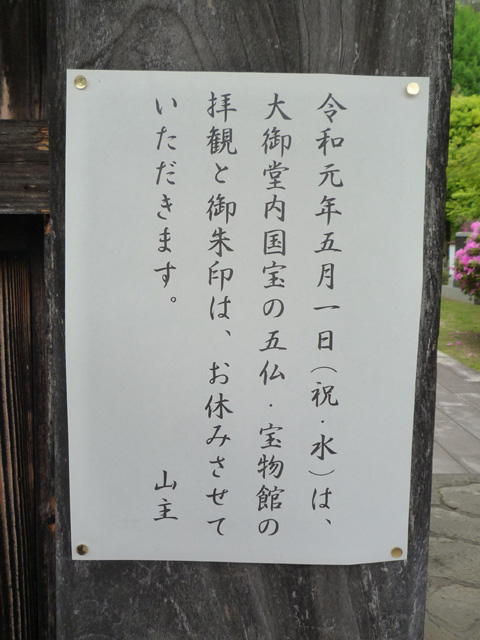 令和元年五月一日（祝・水）は、
大御堂内国宝の五仏・宝物館の
拝観と御朱印は、お休みさせて
いただきます。
山主